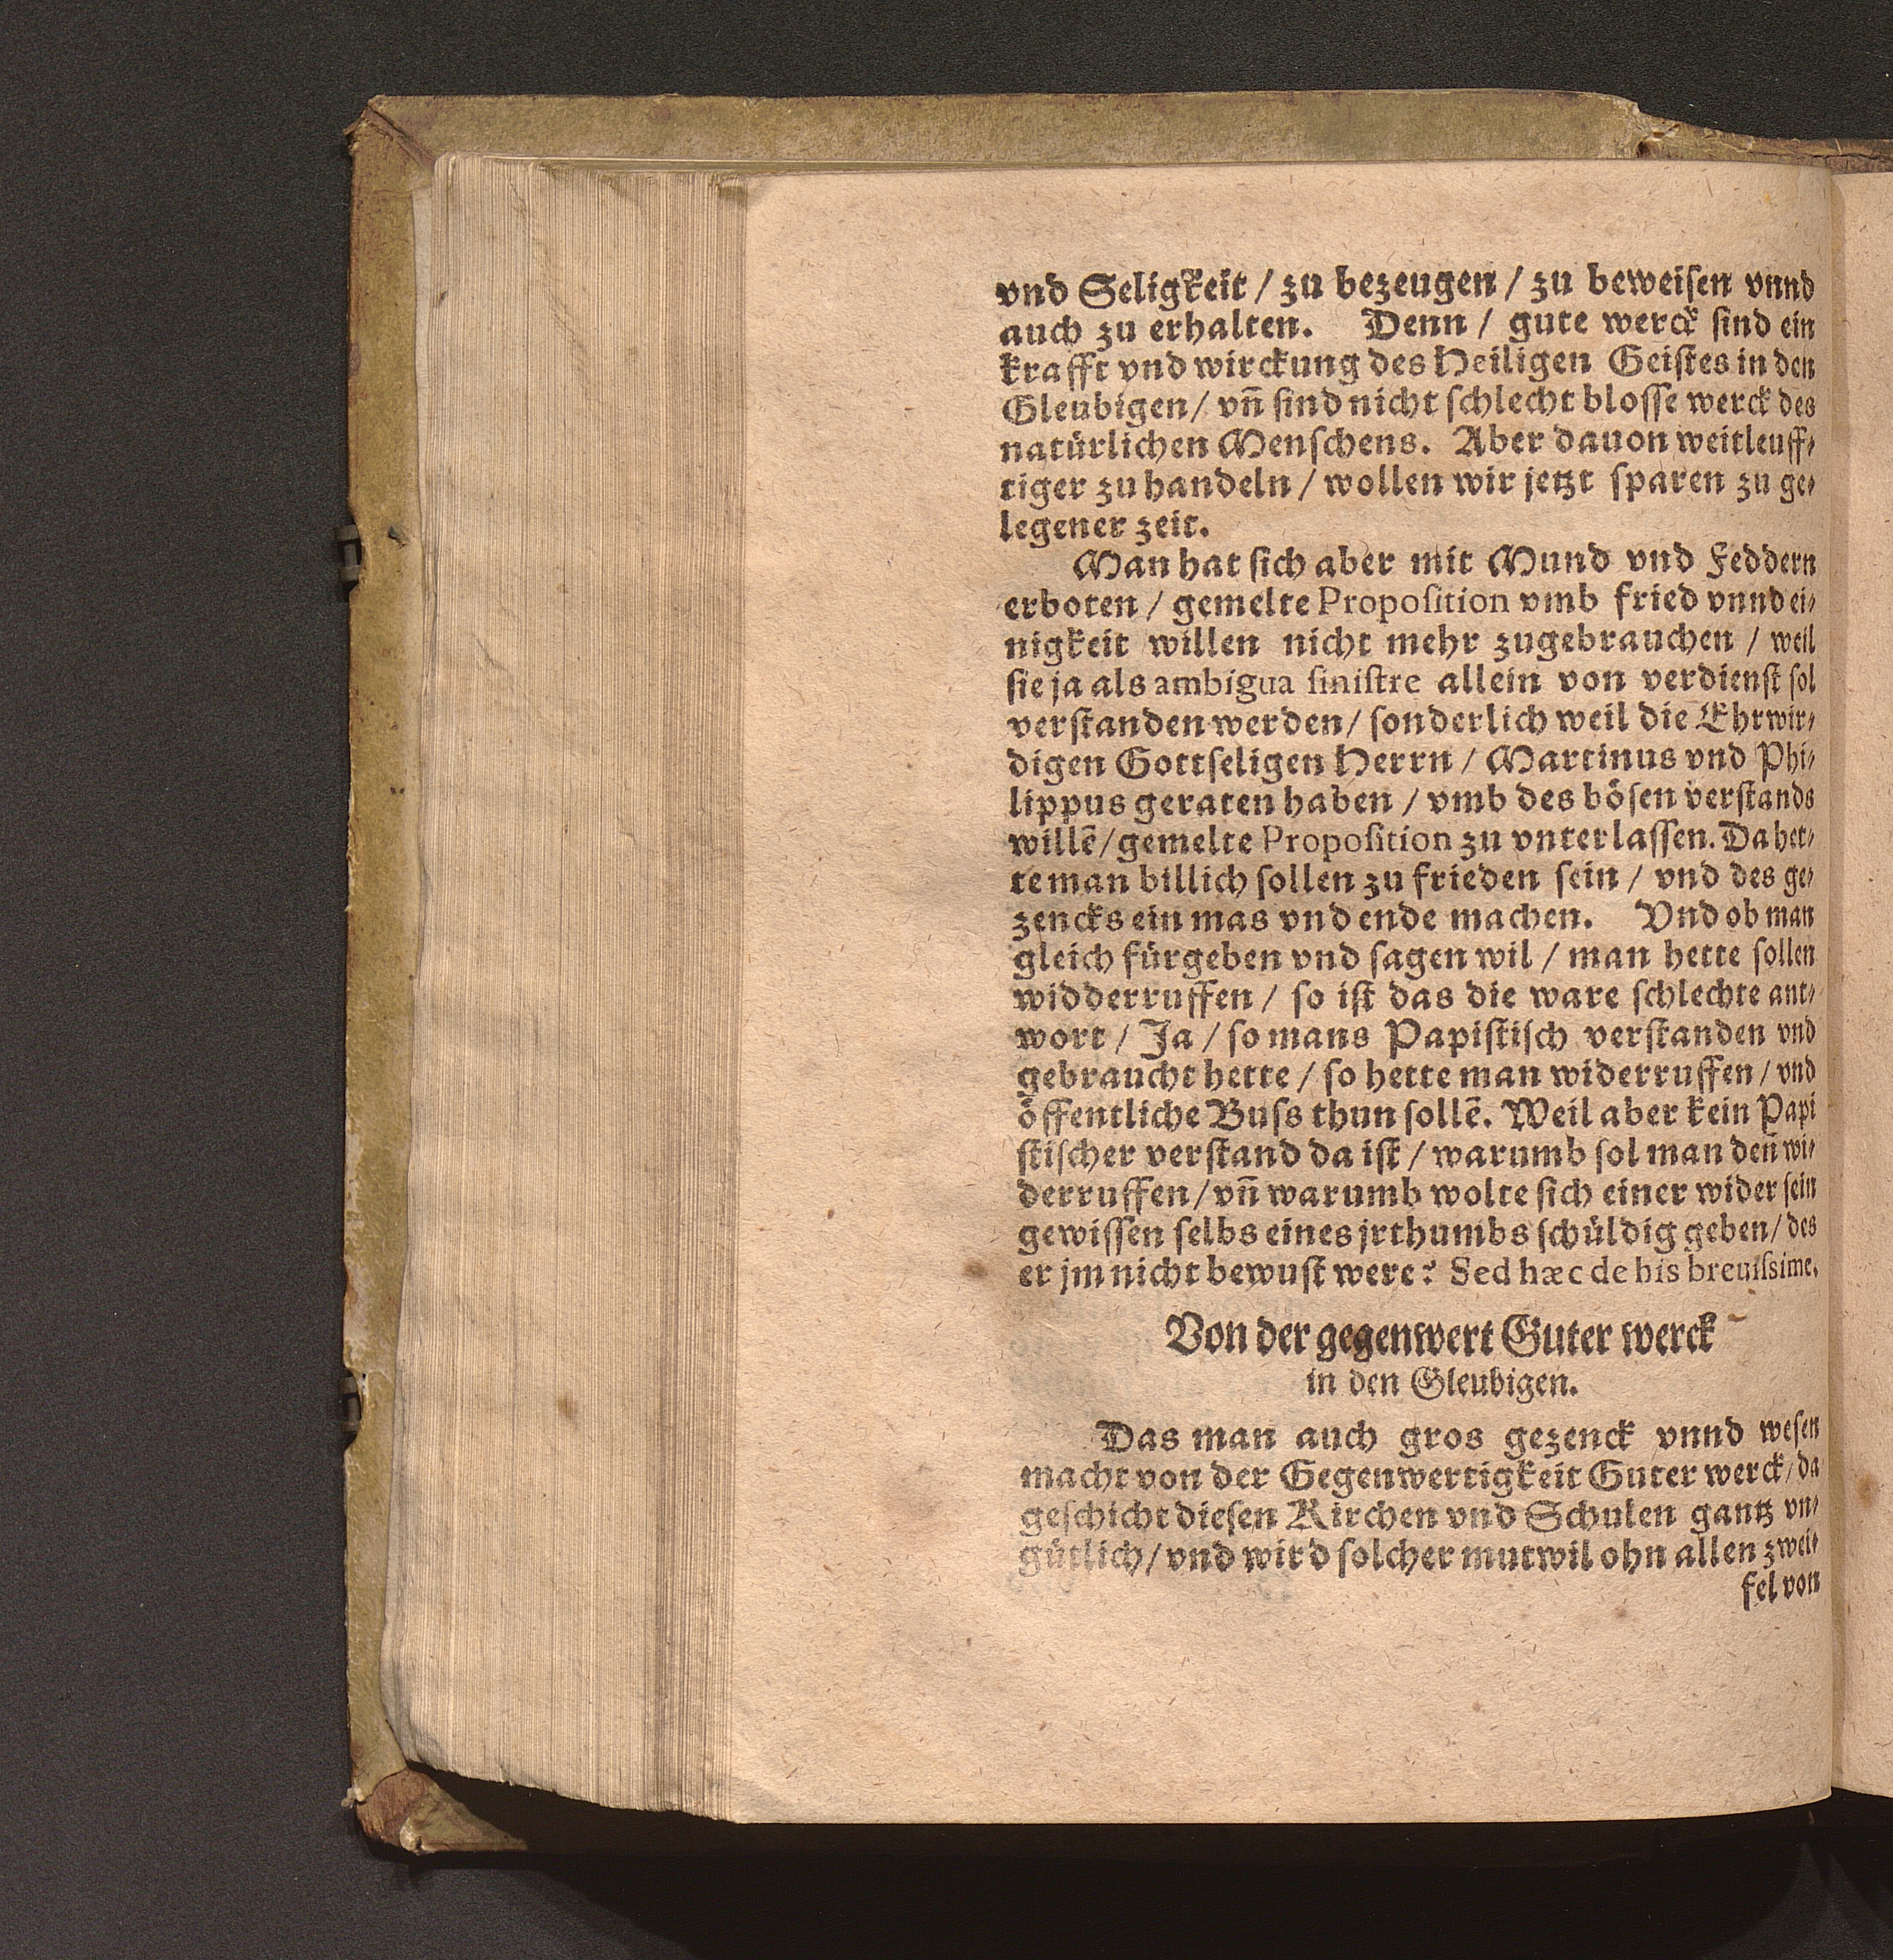 vnd Seligkeit / zu bezeugen / zu beweiſen vnnd
auch zu erhalten. Denn / gute werck ſind ein
krafft vnd wirckung des Heiligen Geiſtes in den
Gleubigen / vn̄ ſind nicht ſchlecht bloſſe werck des
natürlichen Menſchens. Aber dauon weitleuff⸗
tiger zu handeln / wollen wir jetzt ſparen zu ge⸗
legener zeit.
Man hat ſich aber mit Mund vnd Feddern
erboten / gemelte Propoſition vmb fried vnnd ei⸗
nigkeit willen nicht mehr zugebrauchen / weil
ſie ja als ambigua ſiniſtre allein von verdienſt ſol
verſtanden werden / ſonderlich weil die Ehrwir⸗
digen Gottſeligen Herrn / Martinus vnd Phi⸗
lippus geraten haben / vmb des böſen verſtands
willē / gemelte Propoſition zu vnterlaſſen. Da het⸗
te man billich ſollen zu frieden ſein / vnd des ge⸗
zencks ein mas vnd ende machen. Vnd ob man
gleich fürgeben vnd ſagen wil / man hette ſollen
widderruffen / ſo iſt das die ware ſchlechte ant⸗
wort / Ja / ſo mans Papiſtiſch verſtanden vnd
gebraucht hette / ſo hette man widerruffen / vnd
öffentliche Buſs thun ſollē. Weil aber kein Papi
ſtiſcher verſtand da iſt / warumb ſol man den̄ wi⸗
derruffen / vn̄ warumb wolte ſich einer wider ſein
gewiſſen ſelbs eines jrthumbs ſchüldig geben / des
er jm nicht bewuſt were? Sed hæc de his breuiſsime.
Von der gegenwert Guter werck
in den Gleubigen.
Das man auch gros gezenck vnnd weſen
macht von der Gegenwertigkeit Guter werck / da
geſchicht dieſen Kirchen vnd Schulen gantz vn⸗
gütlich / vnd wird ſolcher mutwil ohn allen zwei⸗
fel von